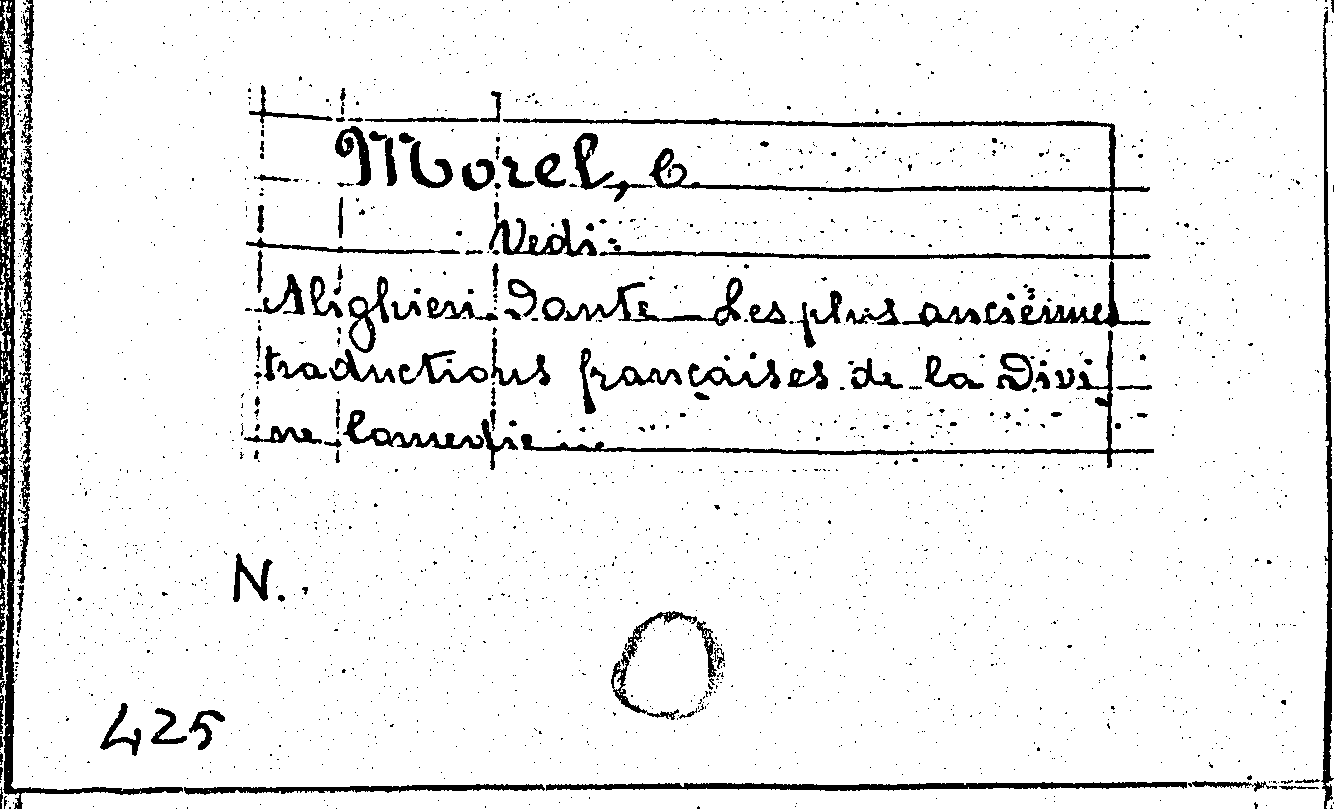 Morel, C.
Vedi:
Alighieri Dante – Les plus anciénnes
traductions françaises de la Divi
ne Comedie ...
N.
425